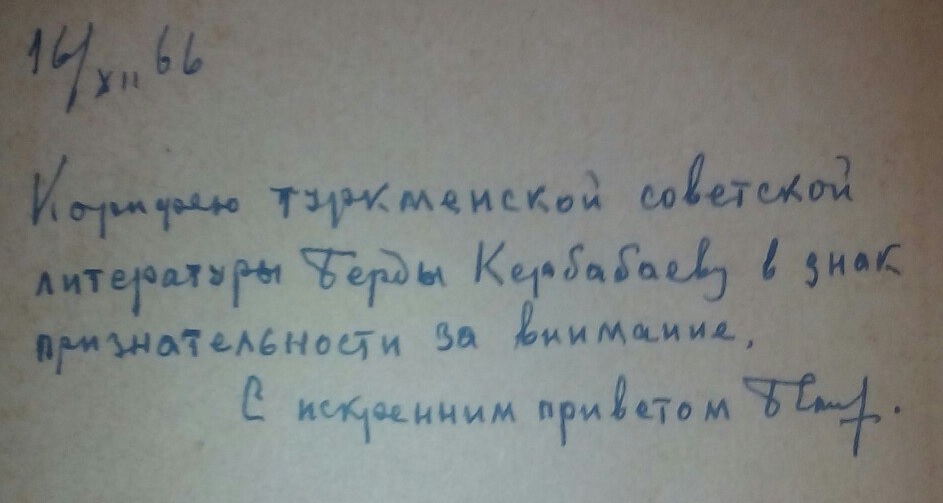 16/XII 66
Корифею туркменской советской
литературы Берды Кербабаеву в знак
признательности за внимание.
С искренним приветом